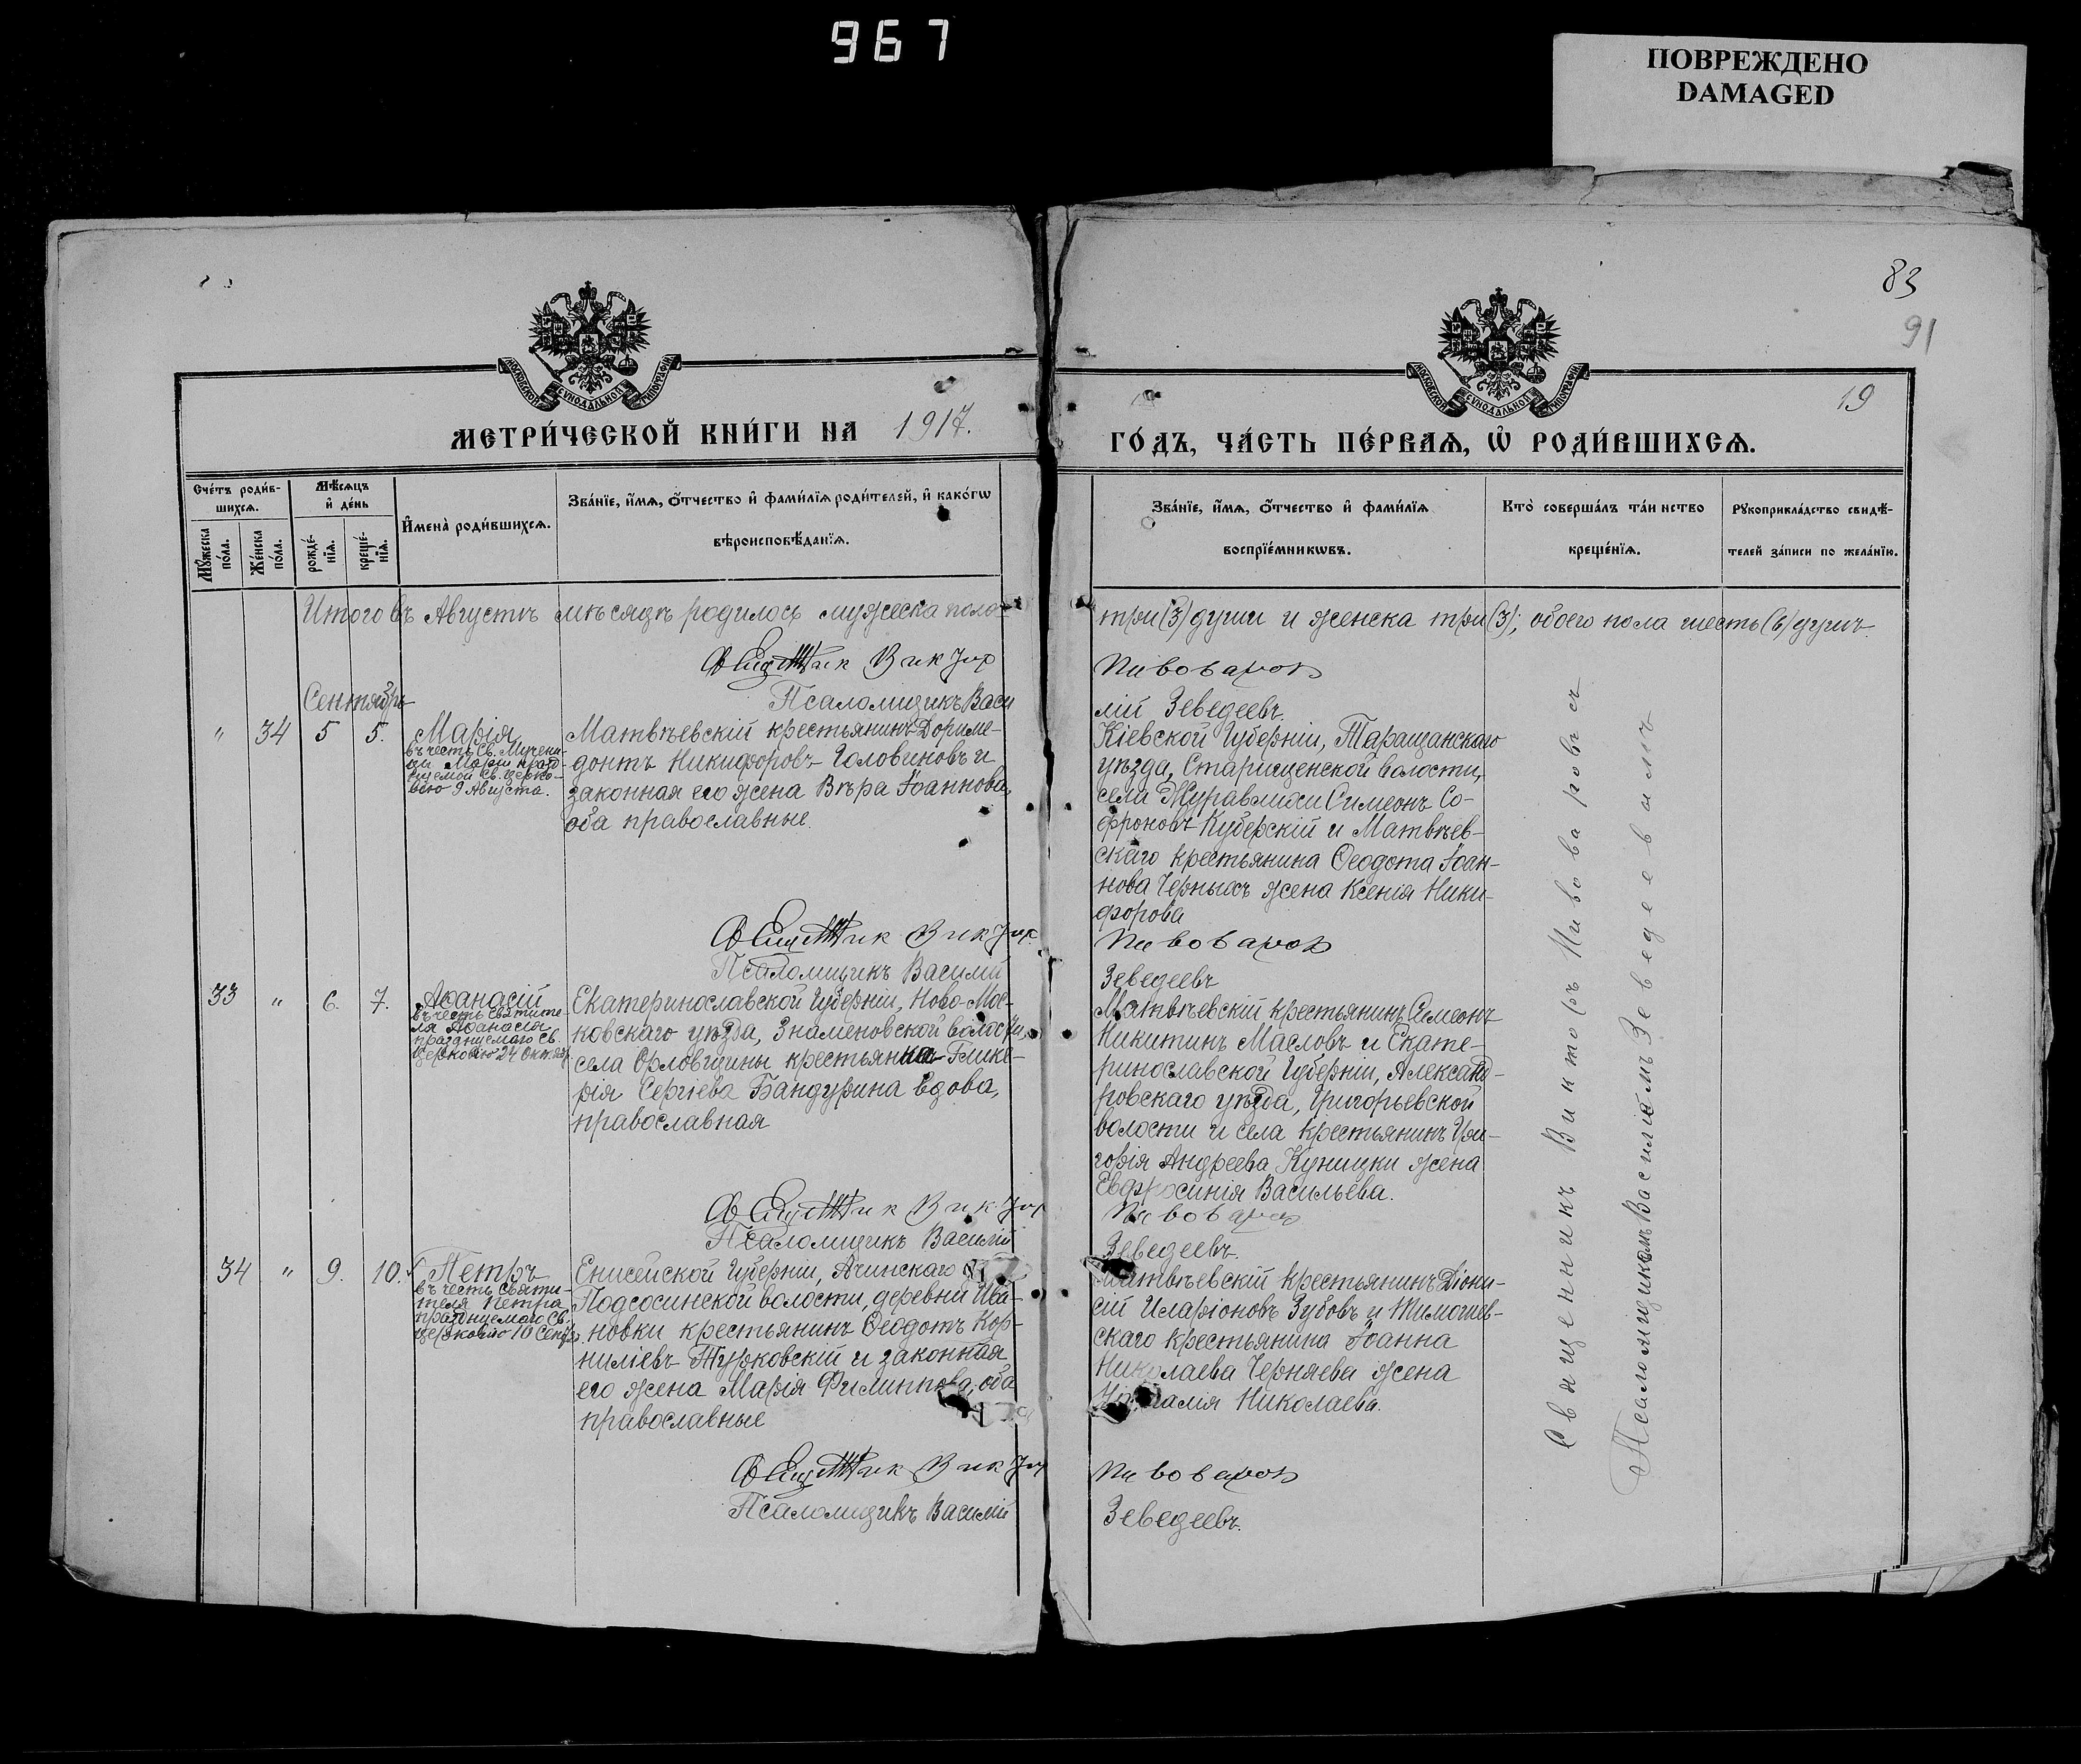 967
ПОВРЕЖДЕНО
DAMAGED
83
91
19
МОСКОВСКОЙ СѴНОДАЛЬНОЙ ТИПОГРАФІИ
МОСКОВСКОЙ СѴНОДАЛЬНОЙ ТИПОГРАФІИ
МЕТРИ́ЧЕСКОЙ КНИ́ГИ НА 1917.
ГО́ДЪ, ЧА́СТЬ ПЕ́РВАѦ, Ѡ РОДИ́ВШИХСѦ.
Сче́тъ роди́в-
шихсѧ.
Мꙋ́жеска по́ла.
Же́нска по́ла.
Мѣ́сѧцъ
и҆ де́нь
рожде́-
нїѧ.
креще́-
нїѧ.
И҆мена̀ роди́вшихсѧ.
Зва́нїе, и҆́мѧ, ѻ҆́тчество и҆ фами́лїѧ роди́телей, и҆ како́гѡ
вѣроисповѣ́данїѧ.
Зва́нїе, и҆́мѧ, ѻ҆́тчество и҆ фами́лїѧ
воспрїе́мникѡвъ.
Кто̀ соверша́лъ та́инство
креще́нїѧ.
Рꙋкоприкла́дство свидѣ́-
телей за́писи по жела́нїю.
Итого въ Августѣ мѣсяцѣ родилось мужеска пола
три (3) души и женска три (3); обоего пола шесть (6) душъ.
Священник Виктор
Пивоваров
Псаломщикъ Васи
лій Зеведеевъ.
Сентябрь
" 34 5 5.
Марія
въ честь Св. Мучени-
цы Маріи празд-
нуемой св. церко-
вію 9 Августа.
Матвѣевскій крестьянинъ Дориме-
донтъ Никифоровъ Головиновъ и
законная его жена Вѣра Іоаннова,
оба православные.
Кіевской Губерніи, Таращанскаго
уѣзда, Старищенской волости,
села Журавлихи Симеонъ Со-
фроновъ Куберскій и Матвѣев-
скаго крестьянина Ѳеодота Іоан-
нова Черныхъ жена Ксенія Ники-
форова
Священник Виктор
Пивоваров
Псаломщикъ Василій
Зеведеевъ
33 " 6. 7.
Аѳанасій
въ честь Святите-
ля Аѳанасія
празднуемаго Св.
Церковію 24 Октяб.
Екатеринославской Губерніи, Ново-Мос-
ковскаго уѣзда, Знаменовской волости,
села Орловщины крестьянка Глике-
рія Сергіева Бандурина вдова,
православная
Матвѣевскій крестьянинъ Симеонъ
Никитинъ Масловъ и Екате-
ринославской Губерніи, Александ-
ровскаго уѣзда, Григорьевской
волости и села крестьянинъ Гри-
горія Андреева Куницки жена
Евфросинія Васильева.
Священник Виктор
Пивоваров
Псаломщикъ Василій
Зеведеевъ.
34 " 9. 10.
Петръ
въ честь Святи-
теля Петра
празднуемаго Св.
церковію 10 Сентяб.
Енисейской Губерніи, Ачинскаго
Подсосинской волости, деревни Ива-
новки крестьянинъ Ѳеодотъ Кор-
ниліевъ Журковскій и законная
его жена Марія Филиппова, оба
православные
Матвѣевскій крестьянинъ Діони-
сій Иларіоновъ Зубовъ и Тимошев-
скаго крестьянина Іоанна
Николаева Черняева жена
Наталія Николаева.
Священник Виктор
Пивоваров
Псаломщикъ Василій
Зеведеевъ.
Священникъ Викторъ Пивоваровъ съ
Псаломщикомъ Василіемъ Зеведеевымъ